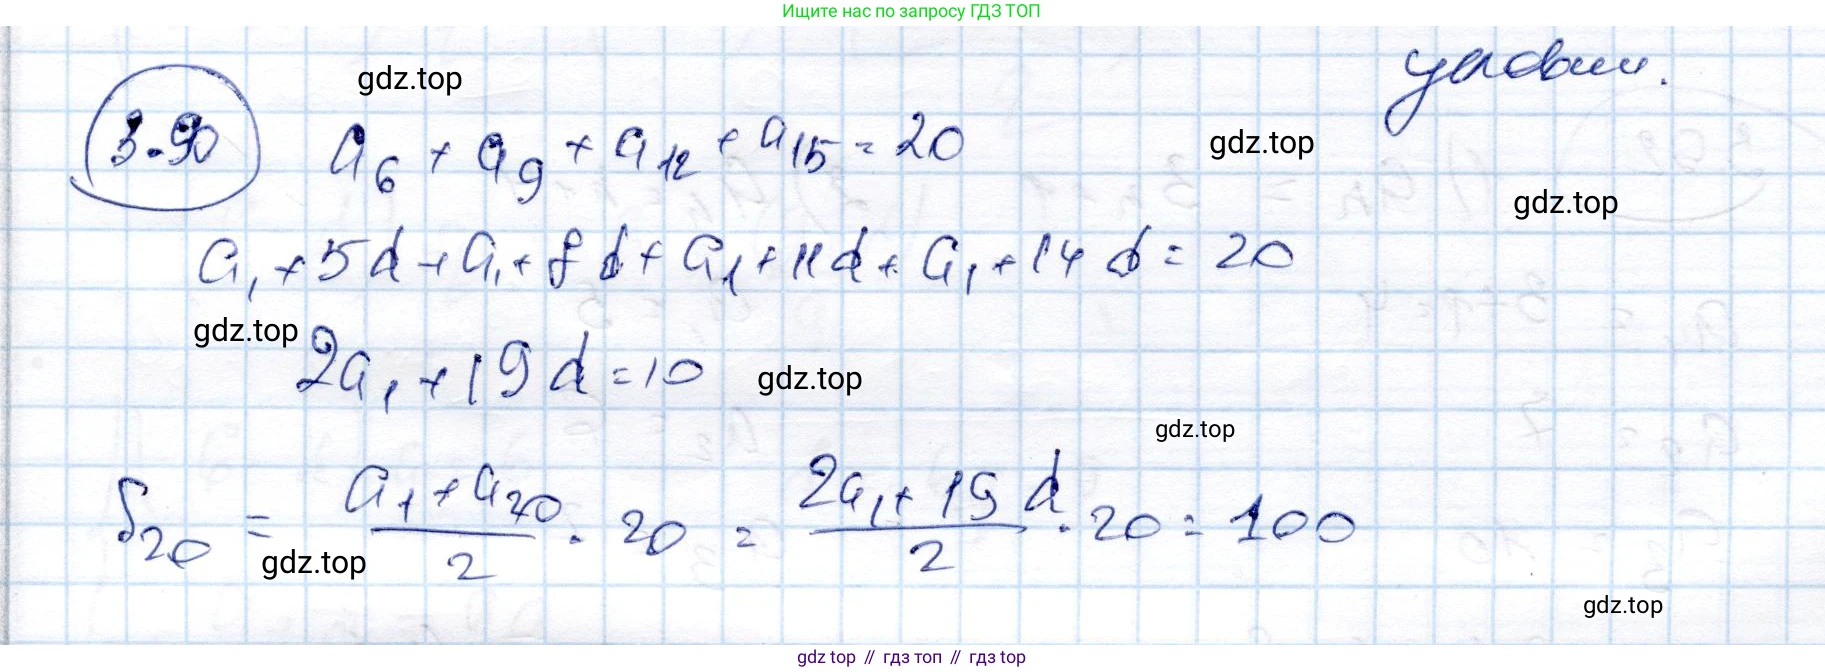 Ищите нас по запросу ГДЗ ТОП
gdz.top
3.90
a₆ + a₉ + a₁₂ + a₁₅ = 20
gdz.top
gdz.top
a₁ + 5d + a₁ + 8d + a₁ + 11d + a₁ + 14d = 20
gdz.top
2a₁ + 19d = 10
gdz.top
gdz.top
S₂₀ = (a₁ + a₂₀)/2 · 20 = (2a₁ + 19d)/2 · 20 = 100
gdz.top
gdz.top
gdz top // гдз топ // gdz top